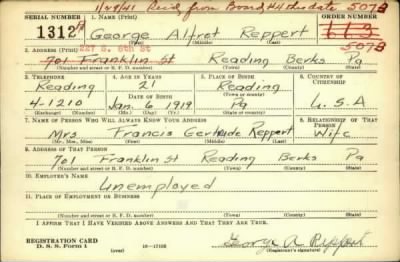 1/28/41 Recd from Board #4 this date 507B
SERIAL NUMBER 1. NAME (Print) ORDER NUMBER
1312 George Alfret Reppert 113
(First) (Middle) (Last)
227 S. 6th St 507B
2. ADDRESS (Print)
701 Franklin St Reading Berks Pa
(Street or R. F. D. number) (Town) (County) (State)
3. TELEPHONE 4. AGE IN YEARS 5. PLACE OF BIRTH 6. COUNTRY OF CITIZENSHIP
Reading 21 Reading
DATE OF BIRTH (Town or county)
4-1210 Jan. 6 1919 Pa U.S.A
(Exchange) (Number) (Mo.) (Day) (Yr.) (State or country)
7. NAME OF PERSON WHO WILL ALWAYS KNOW YOUR ADDRESS 8. RELATIONSHIP OF THAT PERSON
Mrs Francis Gertrude Reppert Wife
(Mr., Mrs., Miss) (First) (Middle) (Last)
9. ADDRESS OF THAT PERSON
701 Franklin St Reading Berks Pa
(Street or R. F. D. number) (Town) (County) (State)
10. EMPLOYER'S NAME
Unemployed
11. PLACE OF EMPLOYMENT OR BUSINESS
(Street or R. F. D. number) (Town) (County) (State)
I AFFIRM THAT I HAVE VERIFIED ABOVE ANSWERS AND THAT THEY ARE TRUE.
REGISTRATION CARD
D. S. S. Form 1 (over) 16-17105 George A Reppert
(Registrant's signature)